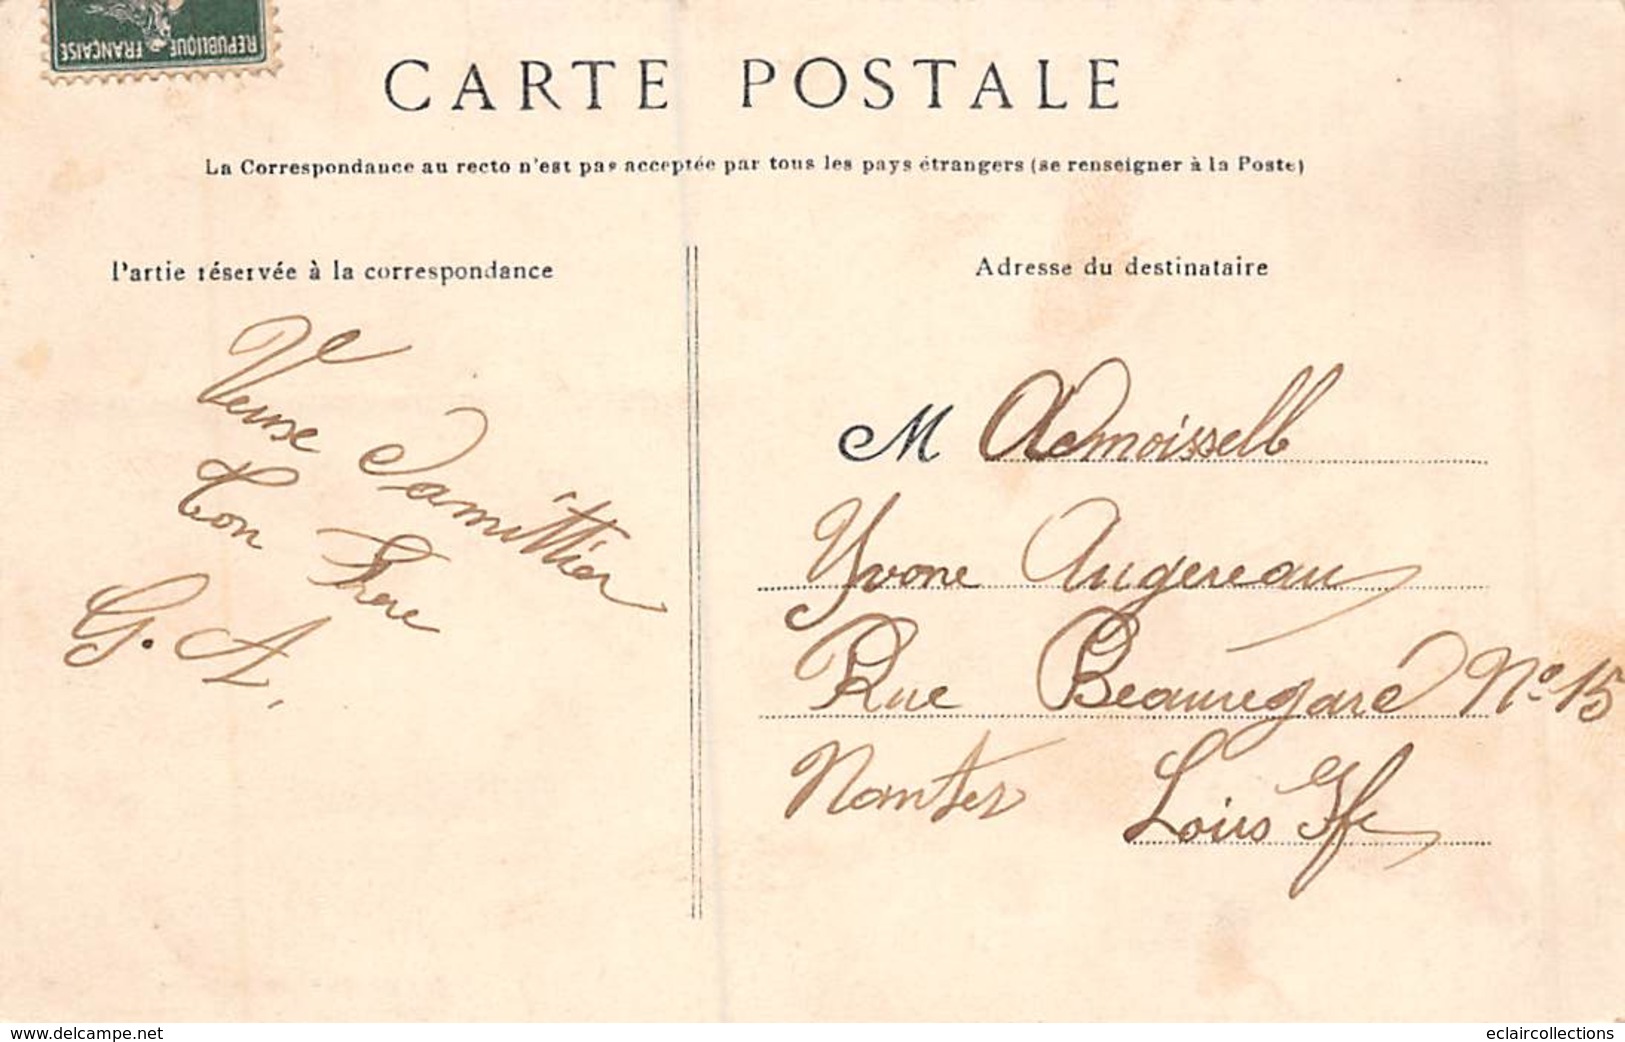 REPUBLIQUE FRANÇAISE
CARTE POSTALE
La Correspondance au recto n'est pas acceptée par tous les pays étrangers (se renseigner à la Poste)
Partie réservée à la correspondance
Adresse du destinataire
Ton Frere
G. A.
M Ademoisselle
Yvone Augereau
Rue Beauregard No 15
Nantes Loire Ife
www.delcampe.net
eclaircollections